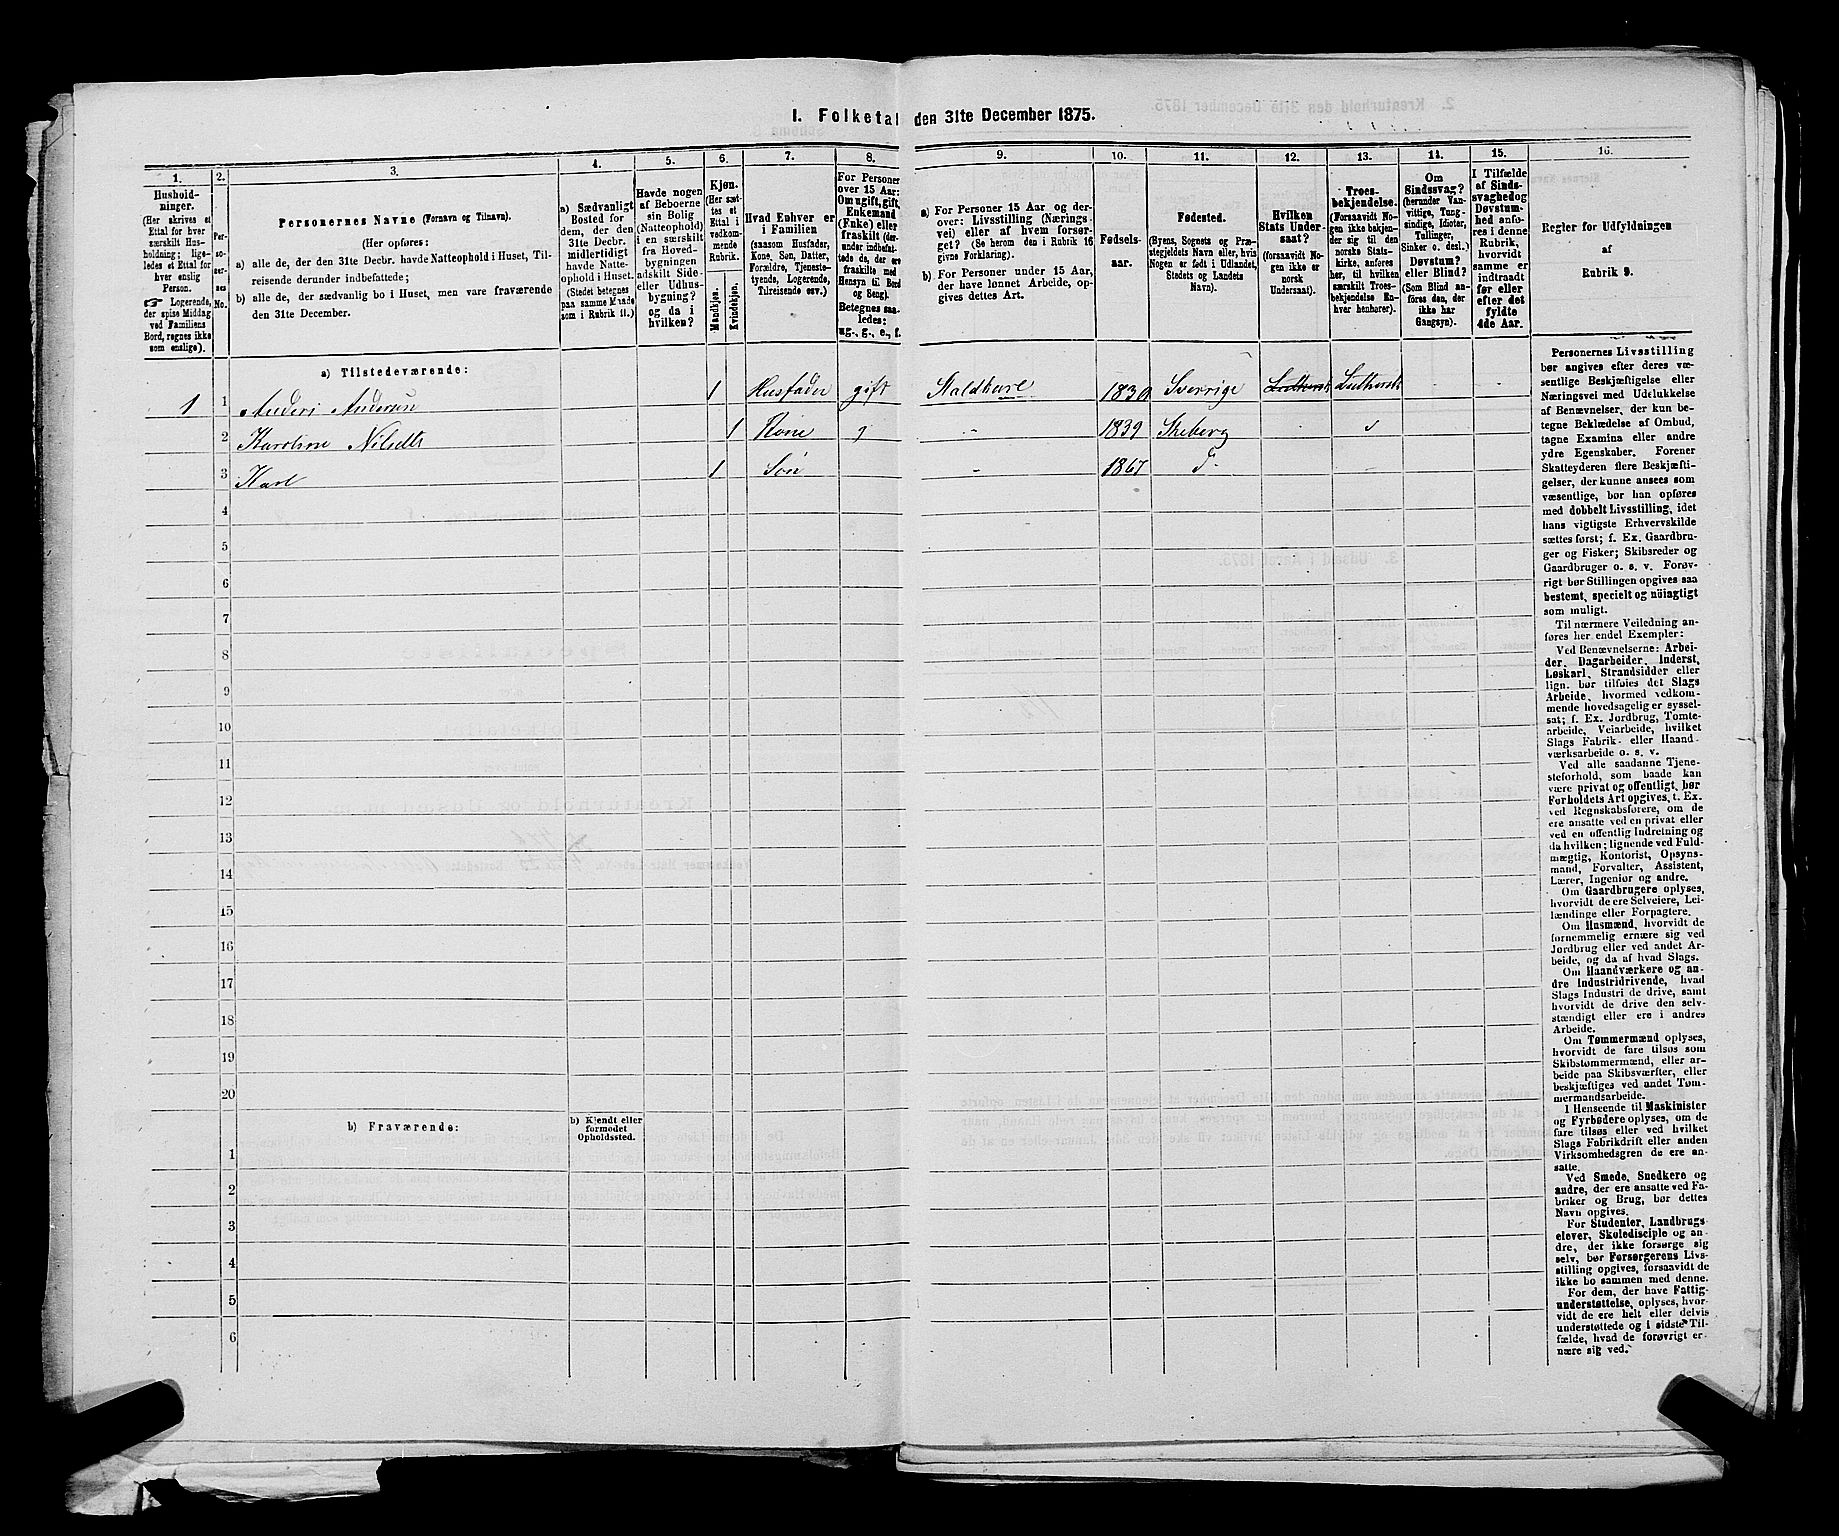 I. Folketal den 31te December 1875.
1.
Hushold-
ninger.
(Her skrives et
Ettal for hver
særskilt Hus-
holdning; lige-
ledes et Ettal for
hver enslig
Person.
☞ Logerende,
der spise Middag
ved Familiens
Bord, regnes ikke
som enslige).
2.
Per-
so-
ner-
nes
No.
3.
Personernes Navne (Fornavn og Tilnavn).
(Her opføres:
a) alle de, der den 31te Decbr. havde Natteophold i Huset, Til-
reisende derunder indbefattede;
b) alle de, der sædvanlig bo i Huset, men vare fraværende
den 31te December.
4.
a) Sædvanligt
Bosted for
dem, der den
31te Decbr.
midlertidigt
havde Natte-
ophold i Huset.
(Stedet betegnes
paa samme Maade
som i Rubrik 11.)
5.
Havde nogen
af Beboerne
sin Bolig
(Natteophold)
i en særskilt
fra Hoved-
bygningen
adskilt Side-
eller Udhus-
bygning?
og da i
hvilken?
6.
Kjøn.
(Her sæt-
tes et
Ettal i
vedkom-
mende
Rubrik.)
Mandkjøn.
Kvindekjøn.
7.
Hvad Enhver er
i Familien
(saasom Husfader,
Kone, Søn, Datter,
Forældre, Tjeneste-
tyende, Logerende,
Tilreisende osv.)
8.
For Personer
over 15 Aar:
Om ugift, gift,
Enkemand
(Enke) eller
fraskilt (der-
under indbefat-
tede de, der ere
fraskilte med
Hensyn til Bord
og Seng).
Betegnes saa-
ledes:
ug., g., e., f.
9.
a) For Personer 15 Aar og der-
over: Livsstilling (Nærings-
vei) eller af hvem forsør-
get? (Se herom den i Rubrik 16
givne Forklaring).
b) For Personer under 15 Aar,
der have lønnet Arbeide, op-
gives dettes Art.
10.
Fødsels-
aar.
11.
Fødested.
(Byens, Sognets og Præ-
stegjeldets Navn eller, hvis
Nogen er født i Udlandet,
Stedets og Landets
Navn).
12.
Hvilken
Stats Under-
saat?
(forsaavidt No-
gen ikke er
norsk
Undersaat).
13.
Troes-
bekjendelse.
(Forsaavidt No-
gen ikke bekjen-
der sig til den
norske Stats-
kirke, anføres
her, til hvilken
særskilt Troes-
bekjendelse En-
hver henhører).
14.
Om
Sindssvag?
(herunder Van-
vittige, Tung-
sindige, Idioter,
Tullinger,
Sinker o. desl.)
Døvstum?
eller Blind?
(Som Blind an-
føres den, der
ikke har
Gangsyn).
15.
I Tilfælde
af Sinds-
svaghed og
Døvstum-
hed anfø-
res i denne
Rubrik,
hvorvidt
samme er
indtraadt
før eller
efter det
fyldte
4de Aar.
16.
Regler for Udfyldningen
af
Rubrik 9.
a) Tilstedeværende:
1 1 Anders Andersen 1 Husfader gift Staldkarl 1830 Sverrige Luthersk Luthersk - -
2 Karoline Nilsdtr 1 Kone g - 1839 Skeberg
3 Karl 1 Søn - 1867
4
5
6
7
8
9
10
11
12
13
14
15
16
17
18
19
20
b) Fraværende:
b) Kjendt eller
formodet
Opholdssted.
1
2
3
4
5
6
Personernes Livsstilling
bør angives efter deres væ-
sentlige Beskjæftigelse eller
Næringsvei med Udelukkelse
af Benævnelser, der kun be-
tegne Bekledelse af Ombud,
tagne Examina eller andre
ydre Egenskaber. Forener
Skatteyderen flere Beskjæfti-
gelser, der kunne ansees som
væsentlige, bør han opføres
med dobbelt Livsstilling, idet
hans vigtigste Erhvervskilde
sættes først; f. Ex. Gaardbru-
ger og Fisker; Skibsreder og
Gaardbruger o. s. v. Forøv-
rigt bør Stillingen opgives saa
bestemt, specielt og nöiagtigt
som muligt.
Til nærmere Veiledning an-
føres her endel Exempler:
Ved Benævnelserne: Arbei-
der, Dagarbeider, Inderst,
Løskarl, Strandsidder eller
lign. bør tilføies det Slags
Arbeide, hvormed vedkom-
mende hovedsagelig er syssel-
sat; f. Ex. Jordbrug, Tomte-
arbeide, Veiarbeide, hvilket
Slags Fabrik- eller Haand-
værksarbeide o. s. v.
Ved alle saadanne Tjene-
steforhold, som baade kan
være privat og offentligt, bør
Forholdets Art opgives, t. Ex.
ved Regnskabsførere, om de
ere ansatte ved en privat eller
ved en offentlig Indretning og
da hvilken; lignende ved Fuld-
mægtig, Kontorist, Opsyns-
mand, Forvalter, Assistent,
Lærer, Ingeniør og andre.
Om Gaardbrugere oplyses,
hvorvidt de ere Selveiere, Lei-
lændinge eller Forpagtere.
Om Husmænd, hvorvidt de
fornemmelig ernære sig ved
Jordbrug eller ved andet Ar-
beide, og da af hvad Slags.
Om Haandværkere og an-
dre Industridrivende, hvad
Slags Industri de drive, samt
hvorvidt de drive den selv-
stændigt eller ere i andres
Arbeide.
Om Tømmermænd oplyses,
hvorvidt de fare tilsøs som
Skibstømmermænd, eller ar-
beide paa Skibsværfter, eller
beskjæftiges ved andet Tøm-
mermandsarbeide.
I Henseende til Maskinister
og Fyrbødere oplyses, om de
fare tilsøs eller ved hvilket
Slags Fabrikdrift eller anden
Virksomhedsgren de ere an-
satte.
Ved Smede, Snedkere og
andre, der ere ansatte ved Fa-
briker og Brug, bør dettes
Navn opgives.
For Studenter, Landbrugs-
elever, Skoledisciple og an-
dre, der ikke forsørge sig
selv, bør Forsørgerens Livs-
stilling opgives, forsaavidt de
ikke bo sammen med denne.
For dem, der have Fattig-
understøttelse, oplyses, hvor-
vidt de ere helt eller delvis
understøttede og i sidste Til-
fælde, hvad de forøvrigt er-
nære sig ved.